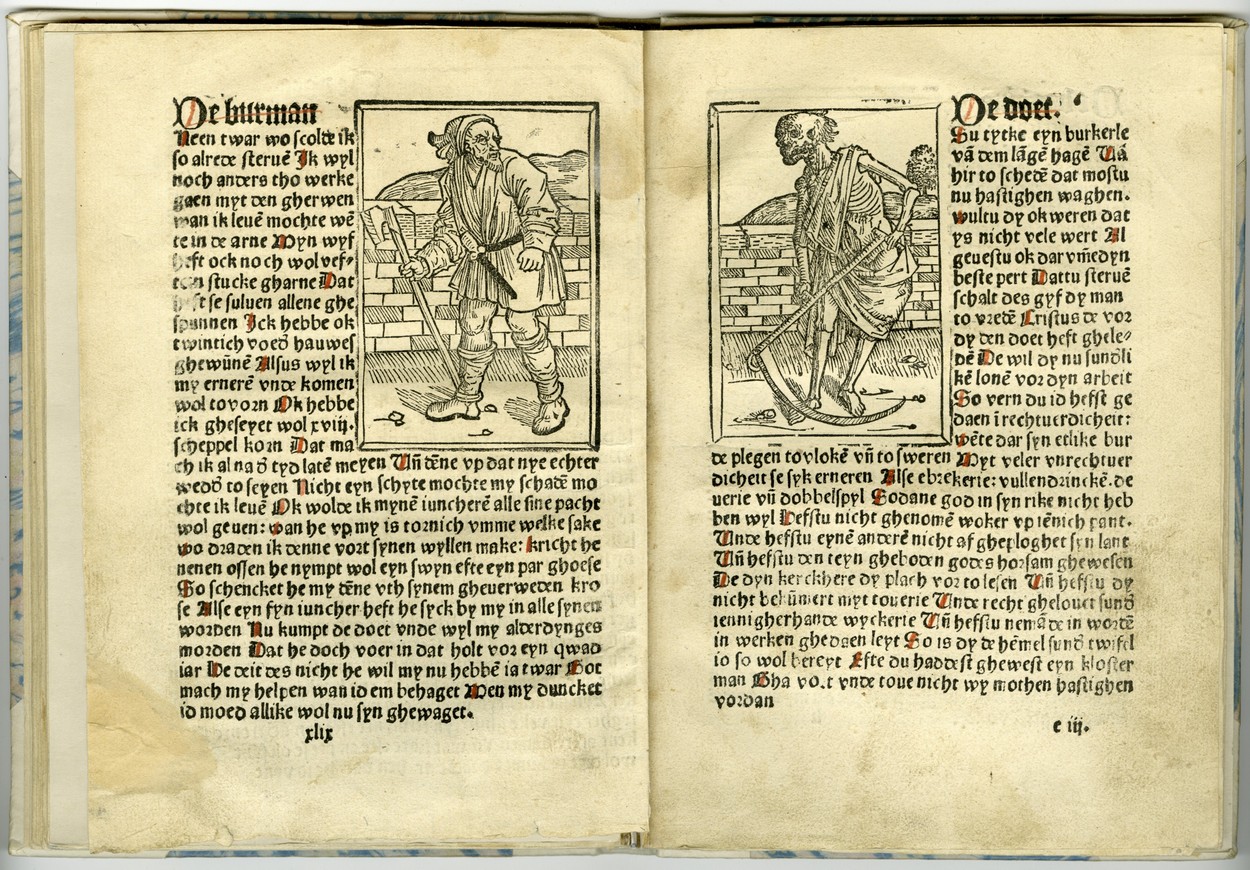 De burman
Neen twar wo scolde ik
so alrede steruē Ik wyl
noch anders tho werke
gaen myt den gherwen
wan ik leuē mochte wē
te in de arne Myn wyf
heft ock noch wol vef-
tein stucke gharne Dat
heft se suluen allene ghe
spunnen Ick hebbe ok
twintich voed hauwes
ghewūnē Alsus wyl ik
my ernerē vnde komen
wol tovorn Ok hebbe
ick gheseyet wol xviij.
scheppel korn Dat ma
ch ik al na d tyd latē meyen Vn̄ dēne vp dat nye echter
wedd to seyen Nicht eyn schyte mochte my schadē mo
chte ik leuē Ok wolde ik mynē iuncherē alle sine pacht
wol geuen: wan he vp my is tornich vmme welke sake
wo draden ik denne vort synen wyllen make: kricht he
nenen ossen he nympt wol eyn swyn efte eyn par ghoese
So schencket he my dēne vth synem gheuerweden kro
se Alse eyn fyn iuncher heft he syck by my in alle synen
worden Nu kumpt de doet vnde wyl my alderdynges
morden Dat he doch voer in dat holt vor eyn qwad
iar De deit des nicht he wil my nu hebbē ia twar Got
mach my helpen wan id em behaget Men my duncket
id moed allike wol nu syn ghewaget.
xlix
De doet.
Su tytke eyn burkerle
vā dem lāgē hagē Vā
hir to schedē dat mostu
nu hastighen waghen.
wultu dy ok weren dat
ys nicht vele wert Al
geuestu ok dar vm̄e dyn
beste pert Dattu steruē
schalt des gyf dy man
to vredē Cristus de vor
dy den doet heft ghele-
dē De wil dy nu sundli
kē lonē vor dyn arbeit
So vern du id hefst ge
daen ī rechtuerdicheit:
wēte dar syn etlike bur
de plegen to vlokē vn̄ to sweren Myt veler vnrechtuer
dicheit se syk erneren Alse ebrekerie: vullendrinckē. de
uerie vn̄ dobbelspyl Sodane god in syn rike nicht heb
ben wyl Hefstu nicht ghenomē woker vp iēnich pant.
Vnde hefstu eynē anderē nicht af gheploghet syn lant
Vn̄ hefstu den teyn gheboden godes horsam ghewesen
De dyn kerckhere dy plach vor to lesen Vn̄ hefstu dy
nicht bekūmert myt touerie Vnde recht ghelouet sund
iennigherhande wyckerie Vn̄ hefstu nemāde in wordē
in werken ghedaen leyt So is dy de hēmel sund twifel
io so wol bereyt Efte du haddest ghewest eyn kloster
man Gha vort vnde toue nicht wy mothen hastighen
vordan
e iij.